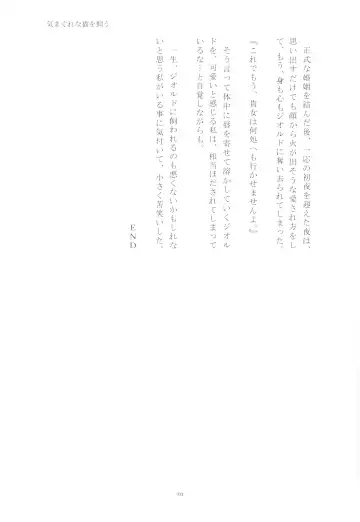 気まぐれな猫を飼う
正式な婚姻を結んだ後、一応の初夜を迎えた夜は、
思い出すだけでも顔から火が出そうな愛され方をし
て、もう、身も心もジオルドに奪い去られてしまった。
『これでもう、貴女は何処へも行かせませんよ。』
そう言って体中に唇を寄せて溶かしていくジオル
ドを、可愛いと感じる私は、相当ほだされてしまって
いるな…と自覚しながらも。
一生、ジオルドに飼われるのも悪くないかもしれな
いと思う私がいる事に気付いて、小さく苦笑いした。
END